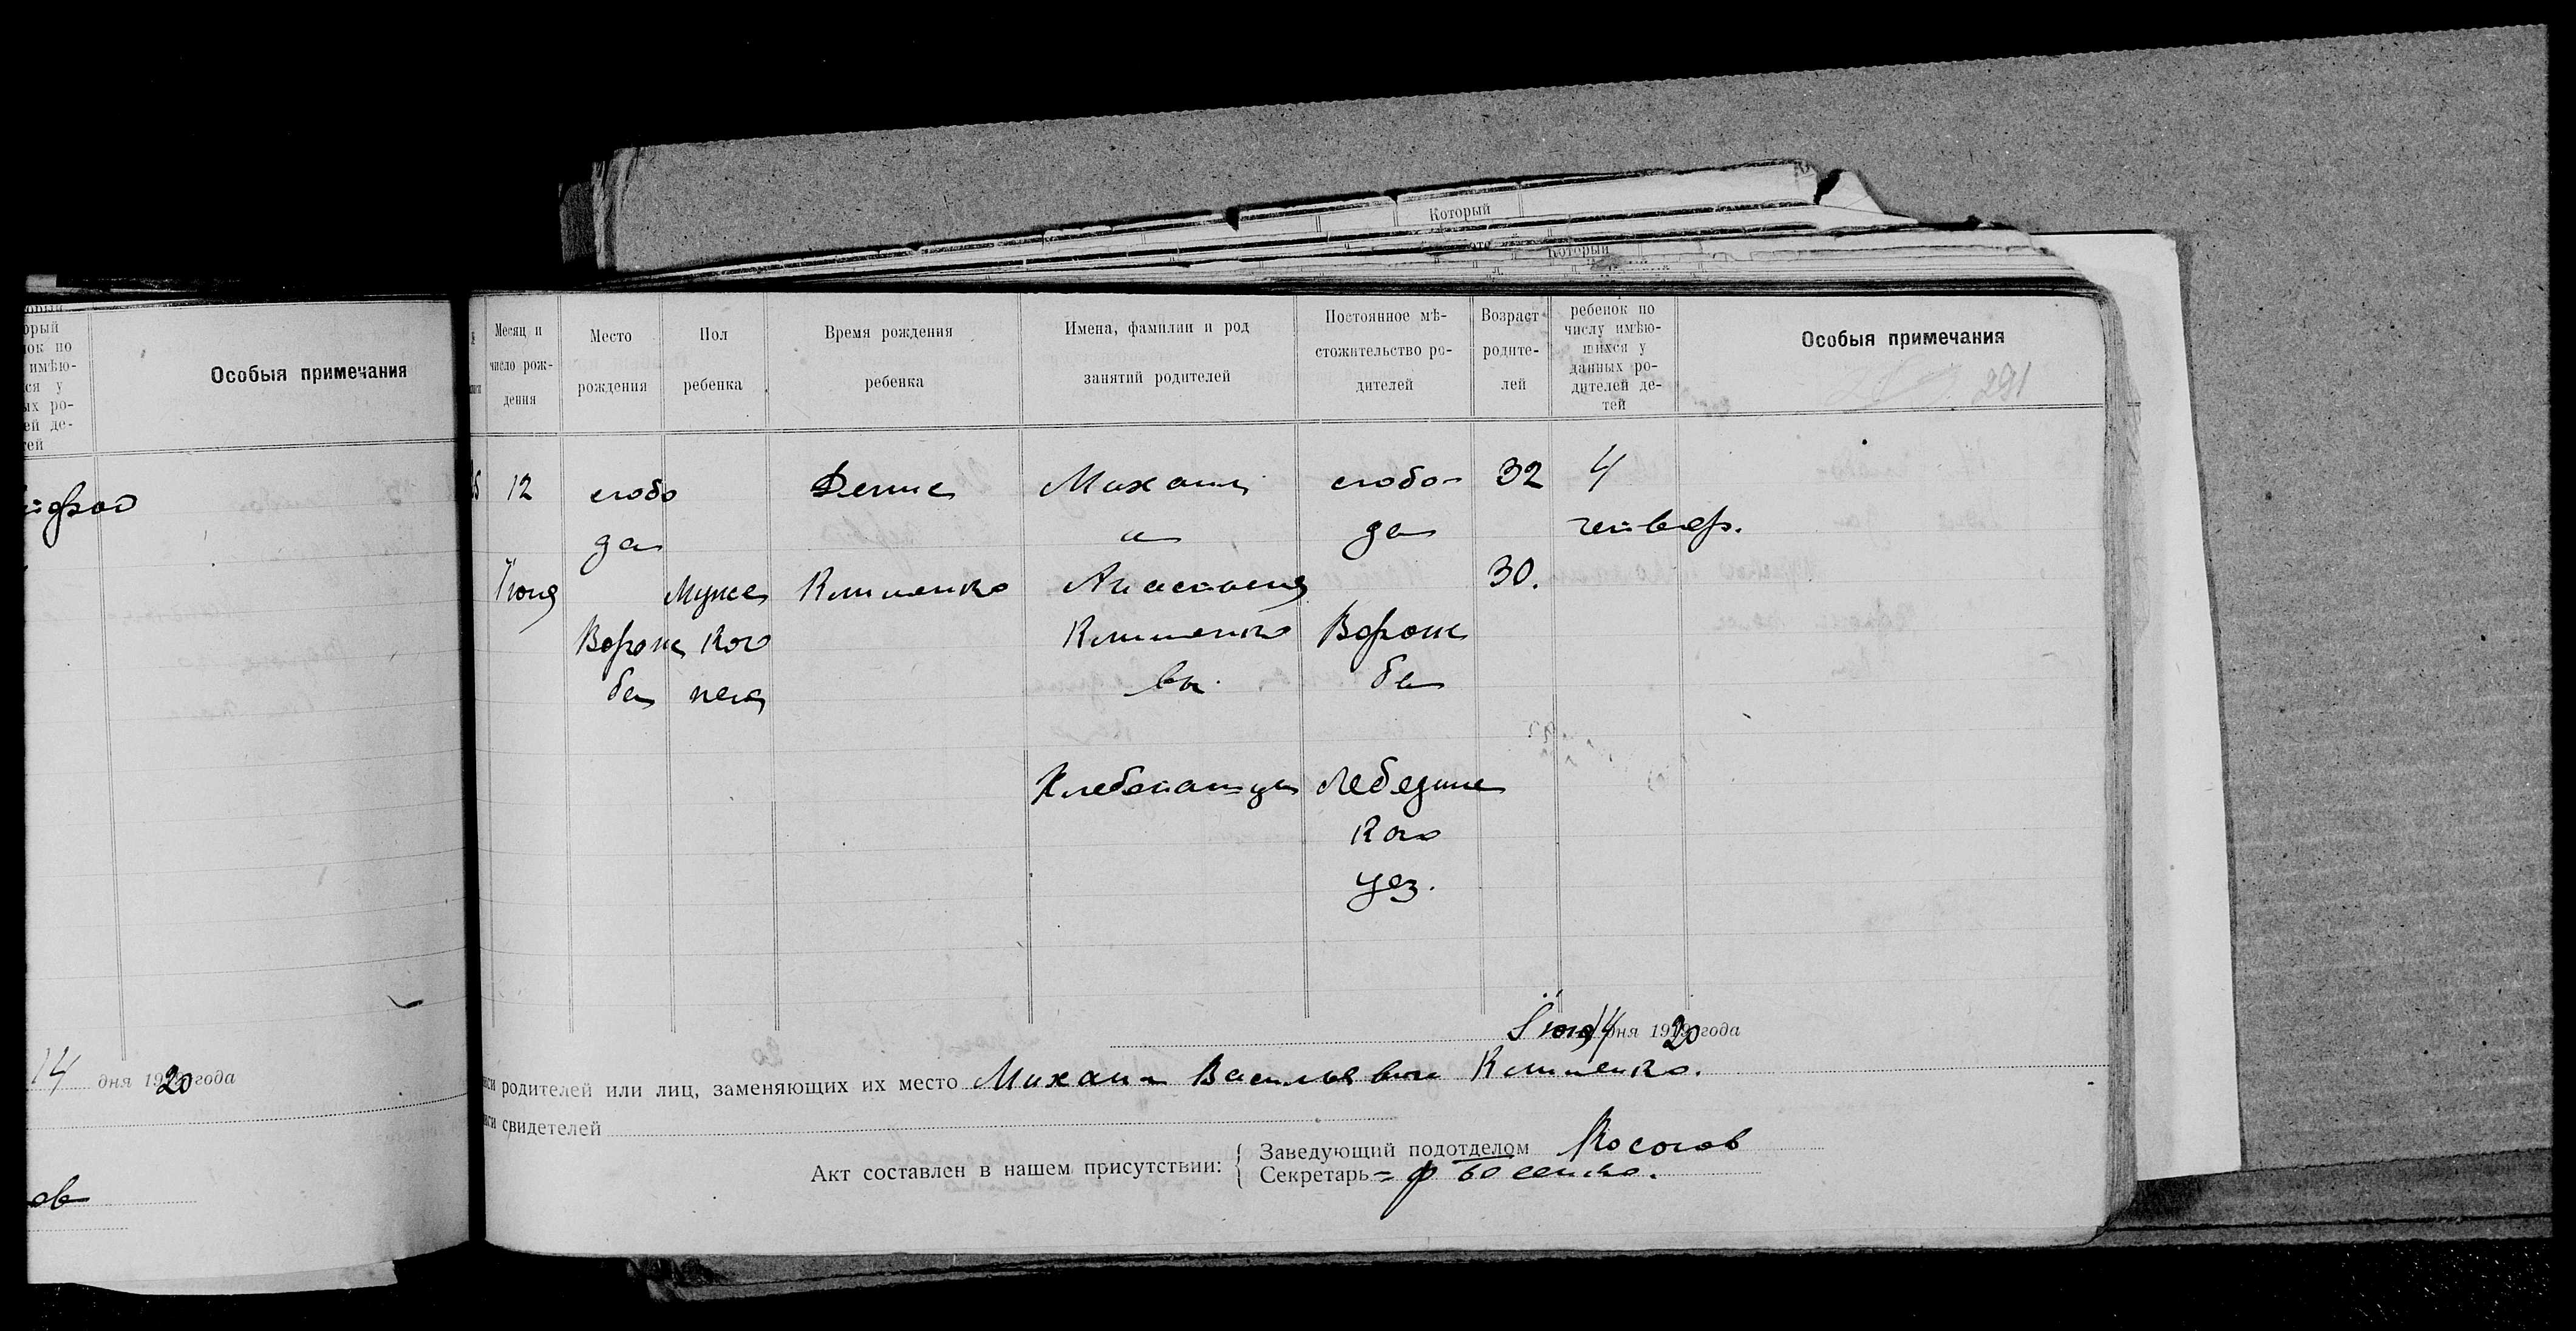 Который
Который
орый
ок по
имѣю-
ся у
ых ро-
ей де-
тей
Особыя примечания
14 дня 1920 года
ов
Месяц и
число рож-
дения
Место
рождения
Пол
ребенка
Время рождения
ребенка
Имена, фамилии и род
занятий родителей
Постоянное мѣ-
стожительство ро-
дителей
Возраст
родите-
лей
ребенок по
числу имѣю-
шихся у
данных ро-
дителей де-
тей
Особыя примечания
291
12
Июня
слобо
да
Ворож
ба
Мужс
кого
пола
Денис
Клименко
Михаил
и
Анастасия
Клименко
вы.
Хлебопашцы
слобо-
да
Ворож
ба
Лебединс
кого
уез.
32
30.
4
четвер.
Июня 14 дня 1920 года
родителей или лиц, заменяющих их место Михаил Васильевич Клименко.
свидетелей
Акт составлен в нашем присутствии:
Заведующий подотделом
Секретарь